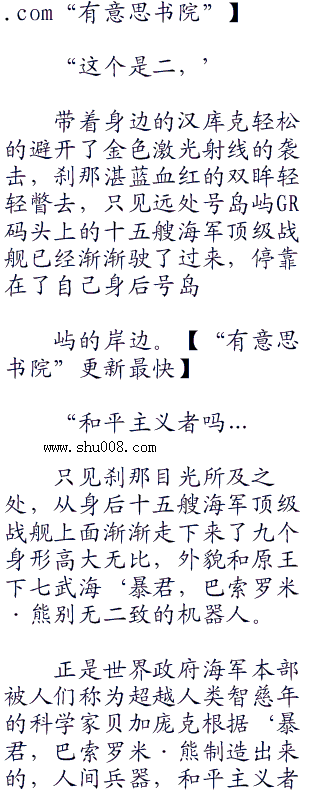 .com“有意思书院”】
“这个是二，’
带着身边的汉库克轻松
的避开了金色激光射线的袭
击，刹那湛蓝血红的双眸轻
轻瞥去，只见远处号岛屿GR
码头上的十五艘海军顶级战
舰已经渐渐驶了过来，停靠
在了自己身后号岛
屿的岸边。【“有意思
书院”更新最快】
“和平主义者吗…
www.shu008.com
只见刹那目光所及之
处，从身后十五艘海军顶级
战舰上面渐渐走下来了九个
身形高大无比，外貌和原王
下七武海‘暴君，巴索罗米
·熊别无二致的机器人。
正是世界政府海军本部
被人们称为超越人类智慈年
的科学家贝加庞克根据‘暴
君，巴索罗米·熊制造出来
的，人间兵器，和平主义者